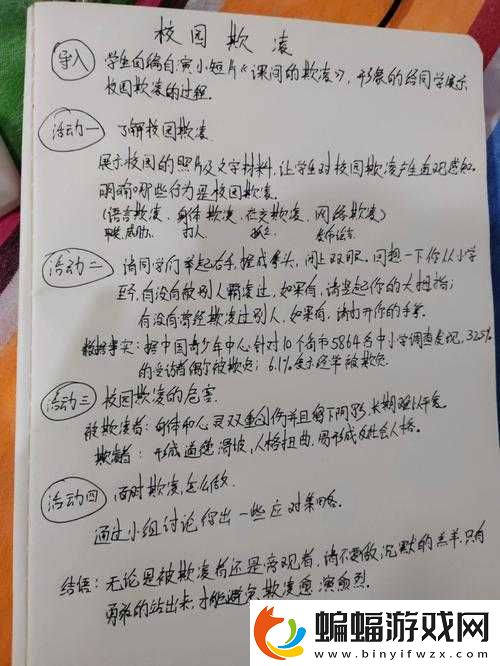 校园欺凌
导入 学生自编自演小短片《课间的欺凌》，形象的给同学展示
校园欺凌的过程.
活动一 了解校园欺凌.
展示校园的照片及文字材料,让学生对校园欺凌产生直观感知.
明确哪些行为是校园欺凌.
(语言欺凌、身体欺凌、社交欺凌、网络欺凌)
打人
活动二 请同学们举起右手,握成拳头,闭上双眼.回想一下你从小学
至今,有没有被别人霸凌过,如果有,请竖起你的大拇指;
有没有曾经欺凌过别人,如果有,请打开你的手掌.
据中国青少年中心针对10个省市5864名中小学调查发现,32.5%
的受访者偶尔被欺负;6.1%表示经常被欺负.
活动三 校园欺凌的危害.
被欺凌者:身体和心灵双重创伤并且留下阴影,长期难以平复
欺凌者:形成道德滑坡,人格扭曲,易形成反社会人格.
活动四 面对欺凌,怎么做.
通过小组讨论得出一些应对策略.
结语:无论是被欺凌者还是旁观者,请不要做沉默的羔羊.只有
勇敢的站出来,才能避免欺凌愈演愈烈.
蝙蝠游戏网
www.binyifwzx.com